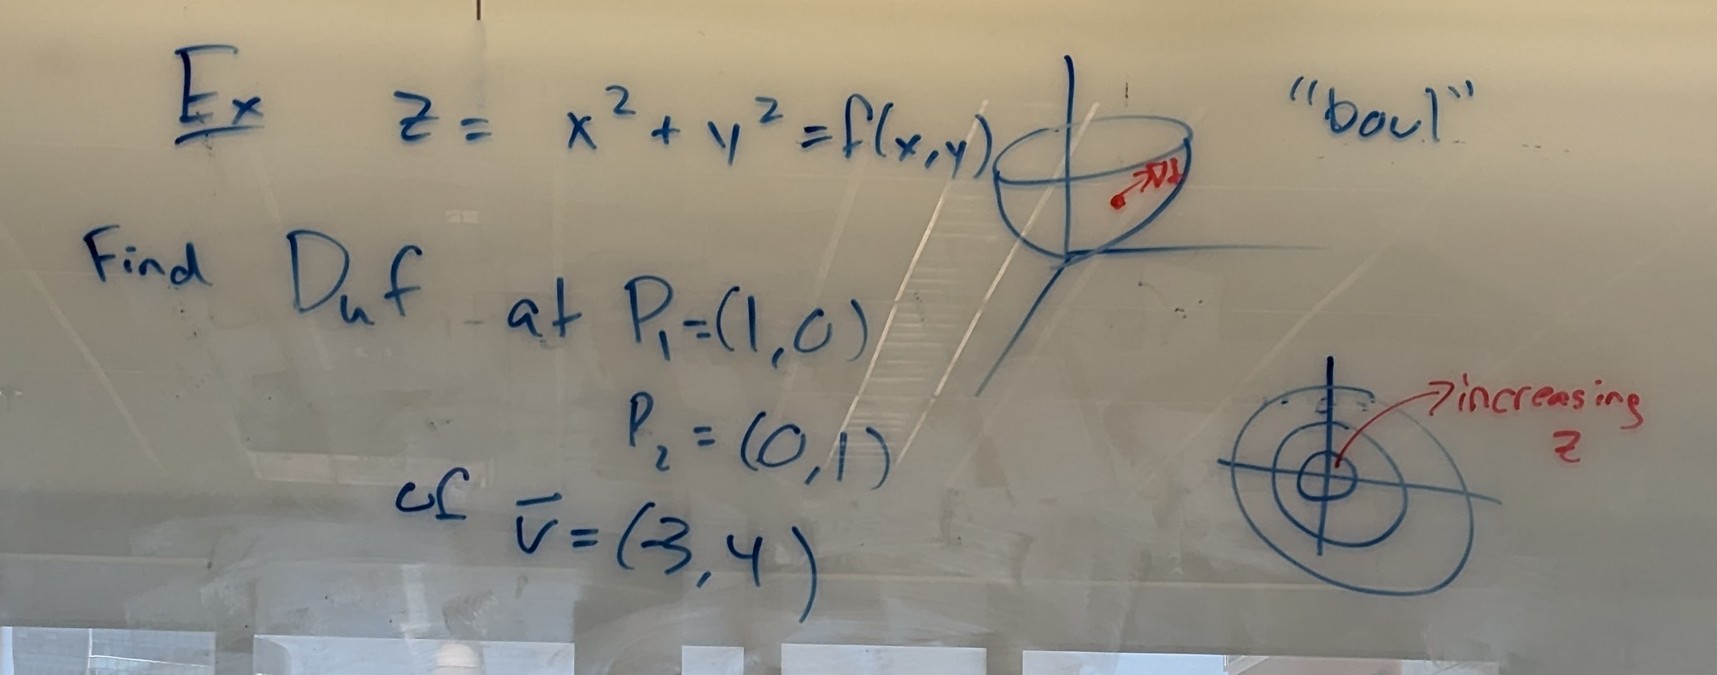 Ex z = x² + y² = f(x,y) "bowl"
Find Duf at P₁=(1,0)
P₂ = (0,1)
of v̄ = (3,4)
increasing
z